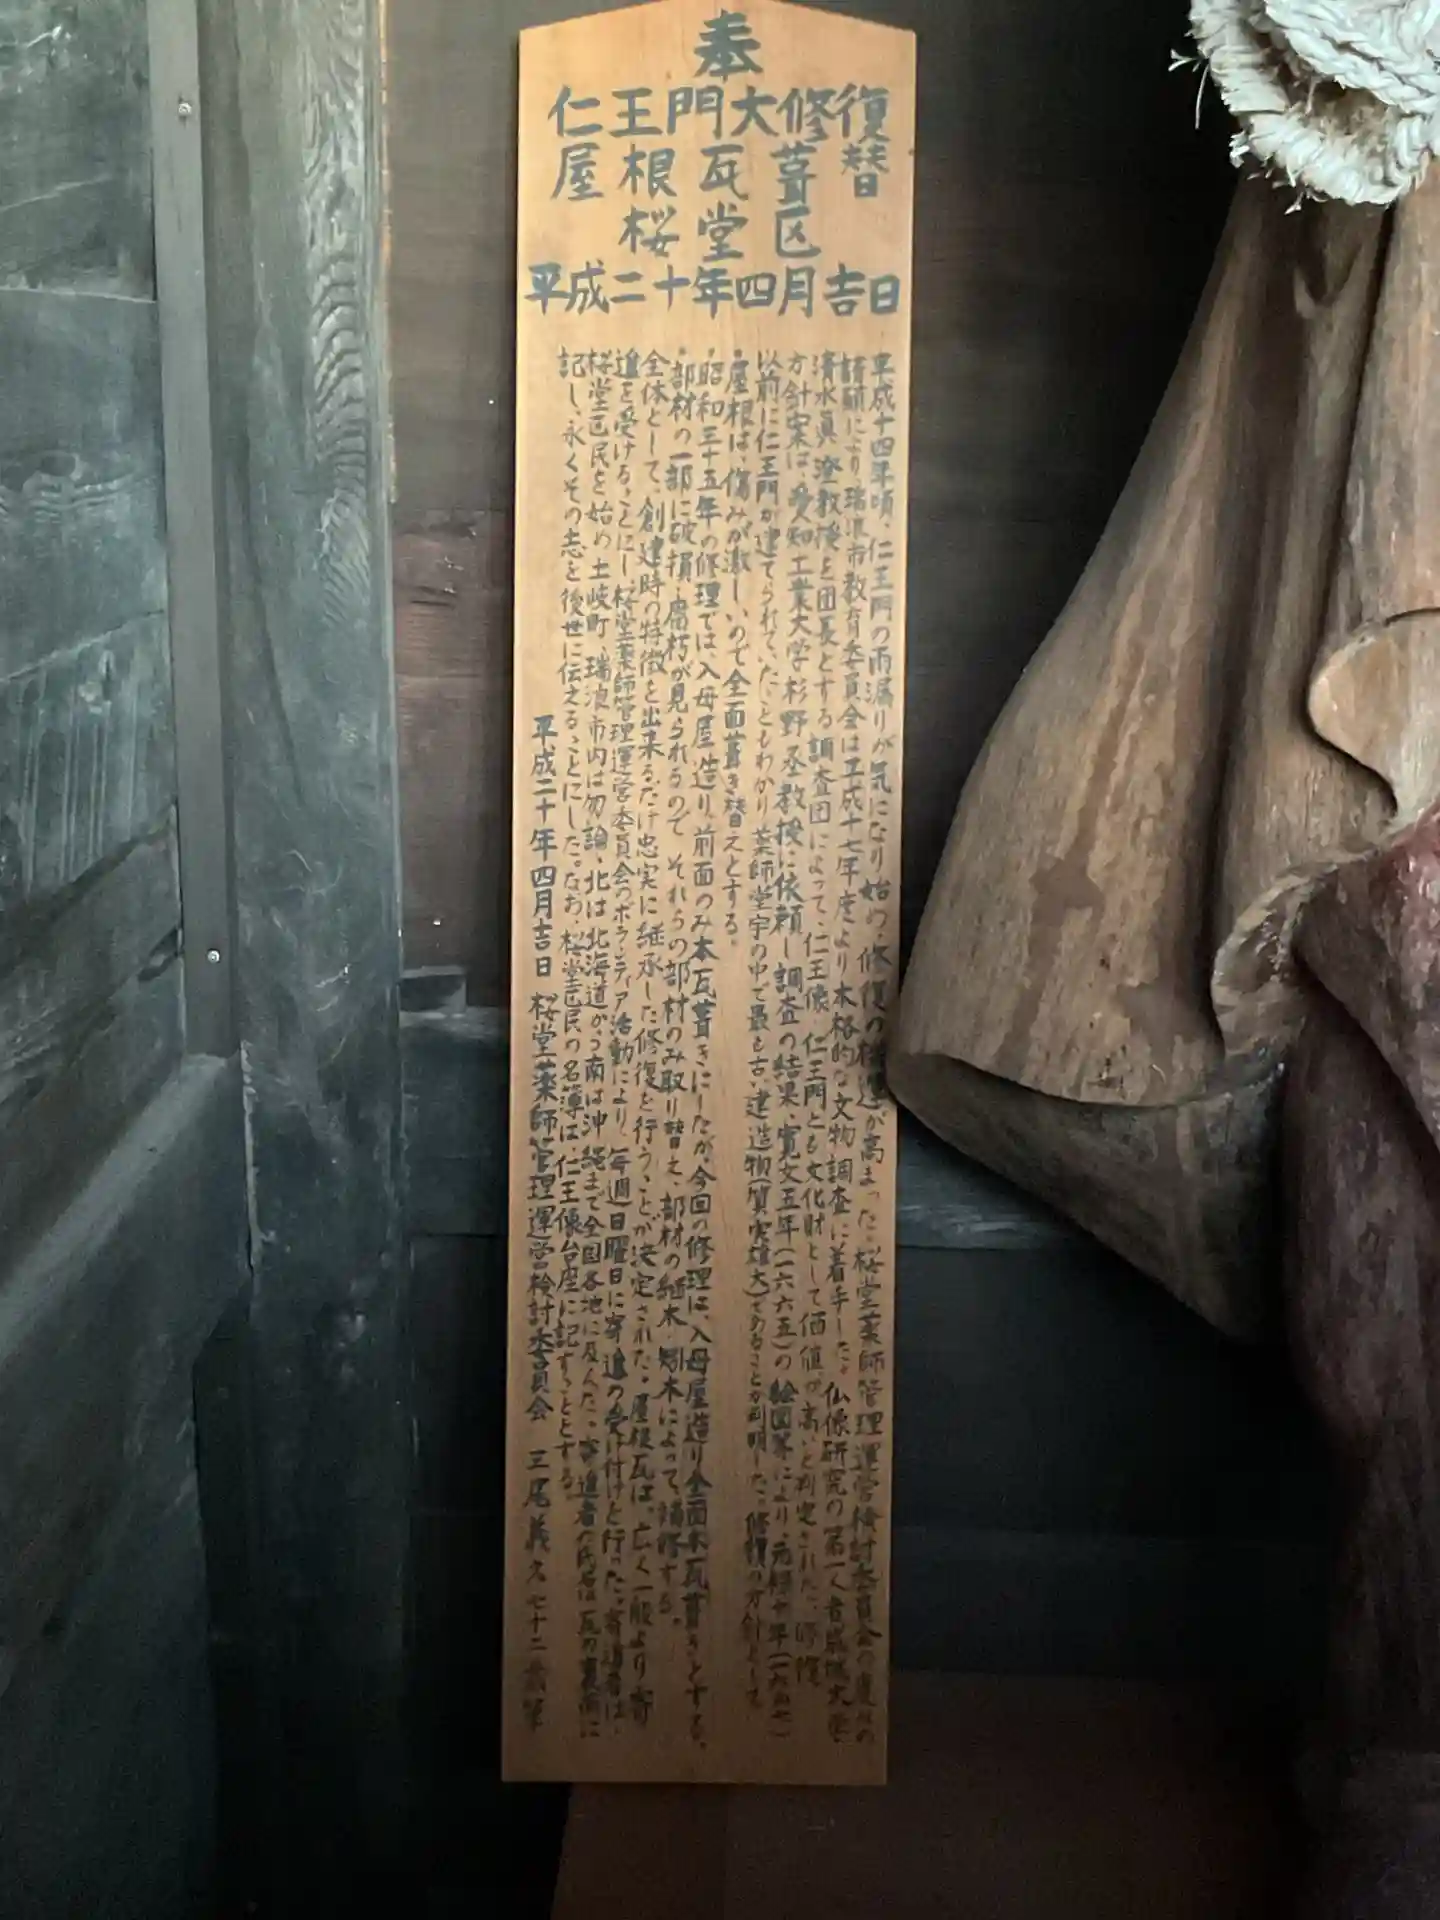 奉
仁王門大修復
屋根瓦葺替
桜堂区
平成二十年四月吉日
平成十四年頃、仁王門の雨漏りが気になり始め、修復の機運が高まった。桜堂薬師管理運営検討委員会の
請願により、瑞浪市教育委員会は平成十七年度より本格的な文物調査に着手した。仏像研究の第一人者成城大学
清水眞澄教授を団長とする調査団によって、仁王像、仁王門とも文化財として価値が高いと判定された。修復
方針案は、愛知工業大学杉野丞教授に依頼し調査の結果、寛文五年(一六六五)の絵図等により、元禄十年(一六九七)
以前に仁王門が建てられていたこともわかり薬師堂宇の中で最も古い建造物(質実雄大)であることが判明した。修復の方針として
・屋根は、傷みが激しいので全面葺き替えとする。
・昭和三十五年の修理では、入母屋造り、前面のみ本瓦葺きにしたが、今回の修理は、入母屋造り全面本瓦葺きとする。
・部材の一部に破損、腐朽が見られるので、それらの部材のみ取り替え、部材の継木・矧木によって、補修する。
全体として、創建時の特徴を出来るだけ忠実に継承した修復を行うことが決定された。屋根瓦は、広く一般より寄
進を受けることにし、桜堂薬師管理運営委員会のボランティア活動により、毎週日曜日に寄進の受け付けを行った。寄進者は、
桜堂区民を始め土岐町、瑞浪市内は勿論、北は北海道から南は沖縄まで全国各地に及んだ。寄進者の氏名は瓦の裏面に
記し、永くその志を後世に伝えることにした。なお、桜堂区民の名簿は、仁王像台座に記すこととする。
平成二十年四月吉日 桜堂薬師管理運営検討委員会 三尾義久 七十二歳筆